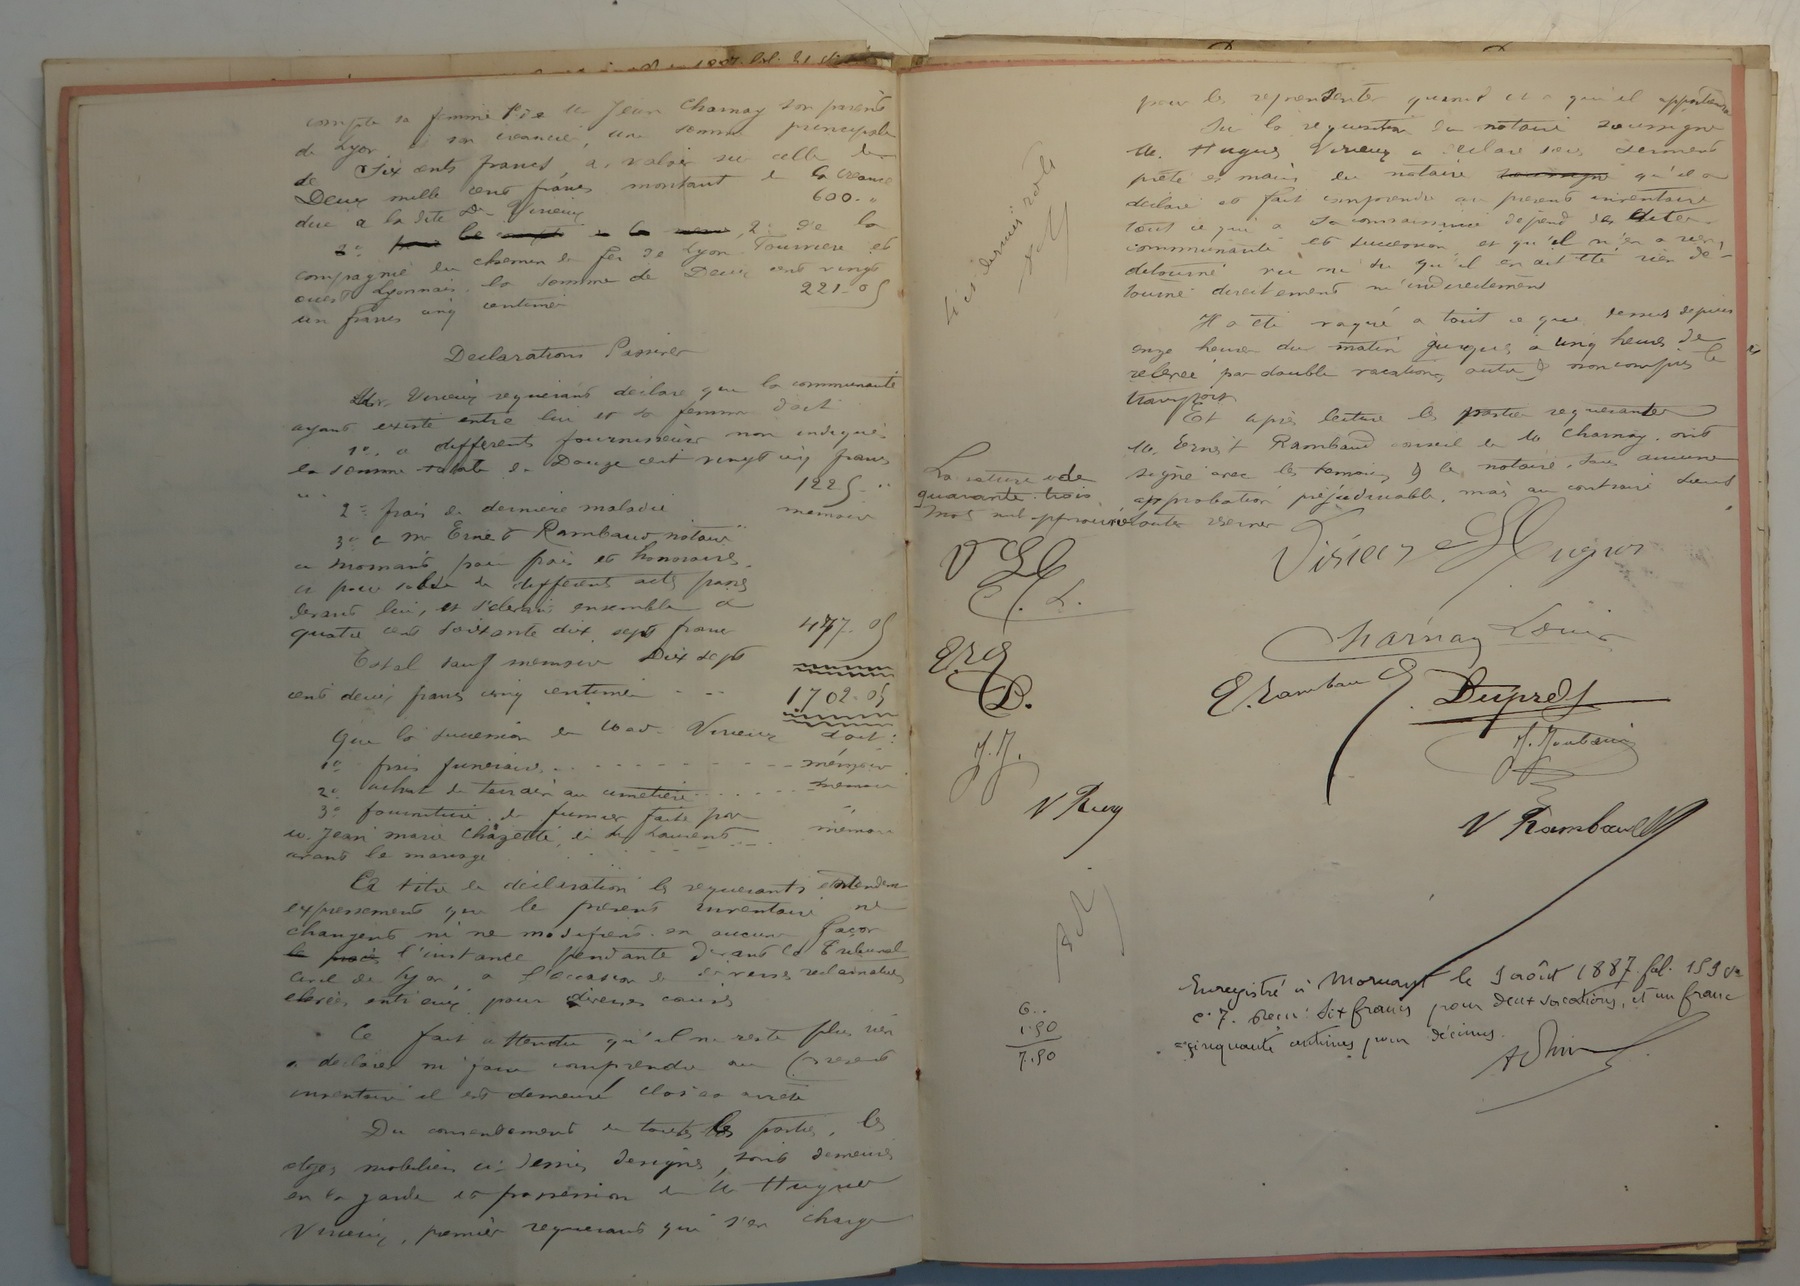 compte sa femme Jean Charnay son parent
de Lyon créancie, une somme principale
de Six cents francs, à valoir sur celle de
Deux mille cent francs montant de la créance
due a la dite De Virieux 600. "
3° 2° de la
compagnie du chemin de fer de Lyon Fourvière et
ouest Lyonnais. la somme de Deux cent vingt
un francs cinq centimes 221-05
Declarations Passives
Mr. Virieux requerant déclare que la communauté
ayant existé entre lui et sa femme doit
1°. a differents fournisseurs non indiqués
la somme totale de Douze cent vingt cinq francs
1225 "
2° frais de dernière maladie memoire
3° a mr Ernest Rambaud notaire
a Mornant pour frais et honoraires
a pour solde de différents actes passés
devant lui, et s'élevant ensemble a
quatre cent soixante dix sept francs 477. 05
Total sauf memoire Dix sept
cent deux francs cinq centimes - - 1.702-05
Que la succession de Mad. Virieux doit:
1° frais funéraires - - - - mémoire
2° achat de terrain au cimetière . . . . . memoire
3° fourniture de fumier faite par
M. Jean marie Chazette, de St Laurent mémoire
avant le mariage
A titre de déclaration les requerants entendent
expressement que le présent inventaire ne
changent ni ne modifient en aucune façon
le procès l'instance pendante devant le Tribunal
Civil de Lyon, a l'occasion de diverses réclamations
élevées entr'eux pour diverses causes
Ce fait attendu qu'il ne reste plus rien
a déclarer ni faire comprendre au présent
inventaire il est demeuré clos et arrêté
Du consentement de toutes les parties, les
objets mobiliers ci-dessus designés, sont demeurés
en la garde et possession de M. Hugues
Virieux, premier requerant qui s'en charge
pour les représenter quand et a qui il appartiendra
Sur la requisition du notaire soussigné
M. Hugues Virieux a déclaré sous serment
prêté es mains du notaire soussigné qu'il a
déclaré et fait comprendre au présent inventaire
tout ce qui a sa connaissance dépend des dites
communauté et succession et qu'il n'en a rien
détourné vu ni su qu'il en ait été rien dé-
tourné directement ni indirectement
Il a été vaqué a tout ce que dessus depuis
onze heures du matin jusques a cinq heures de
relevée par double vacations, outre & non compris le
transport
Et après lecture les parties requerantes et
M. Ernest Rambaud conseil de M. Charnay, ont
signé avec les temoins & les notaires, sans aucune
approbation préjudiciable, mais au contraire sous
toutes réserves
La rature de
quarante trois
mots nuls approuvée
V H
C. L.
E R
D.
J. J.
V Ramb
Virieux Hugues
Charnay Louis
E. Rambaud
Duprès
V Rambaud
Enregistré à Mornant le 9 août 1887. fol. 159 Vo
c. 7. Reçu Six francs pour deux vacations, et un franc
cinquante centimes pour décimes.
6 . .
1.50
7.50